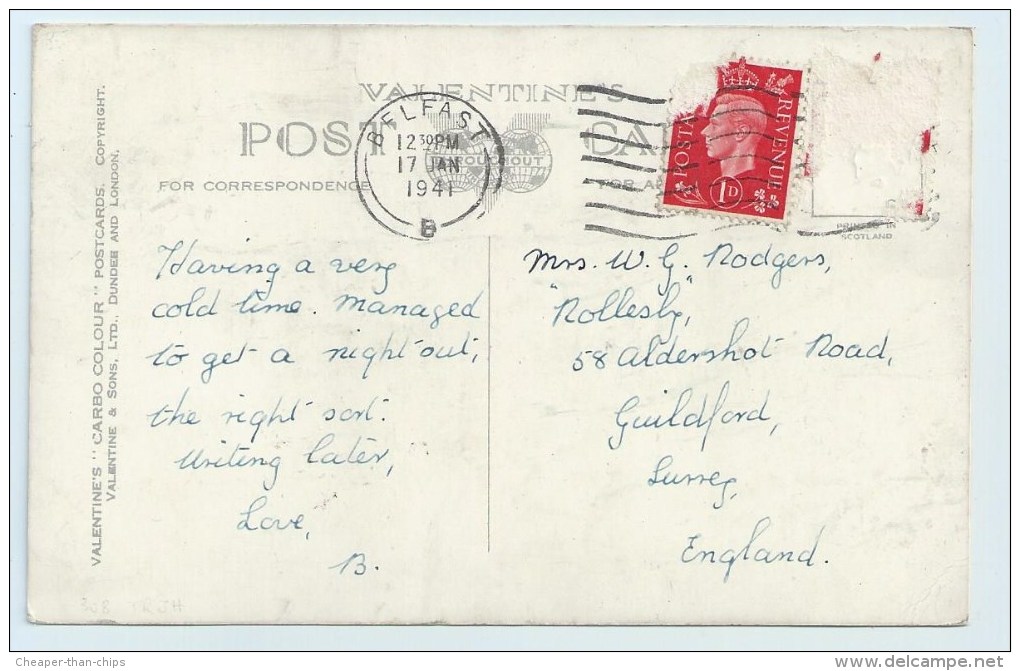 VALENTINE'S
POST CARD
FOR CORRESPONDENCE
THROUGHOUT
BELFAST
12 30 PM
17 JAN
1941
B
POSTAGE REVENUE
1D
PRINTED IN
SCOTLAND
VALENTINE'S "CARBO COLOUR" POSTCARDS. COPYRIGHT.
VALENTINE & SONS, LTD., DUNDEE AND LONDON.
Having a very
cold time. Managed
to get a night out,
the right sort.
Writing later,
Love,
B.
Mrs. W. G. Rodgers,
"Rollesby,"
58 Aldershot Road,
Guildford,
Surrey,
England.
Cheaper-than-chips
www.delcampe.net